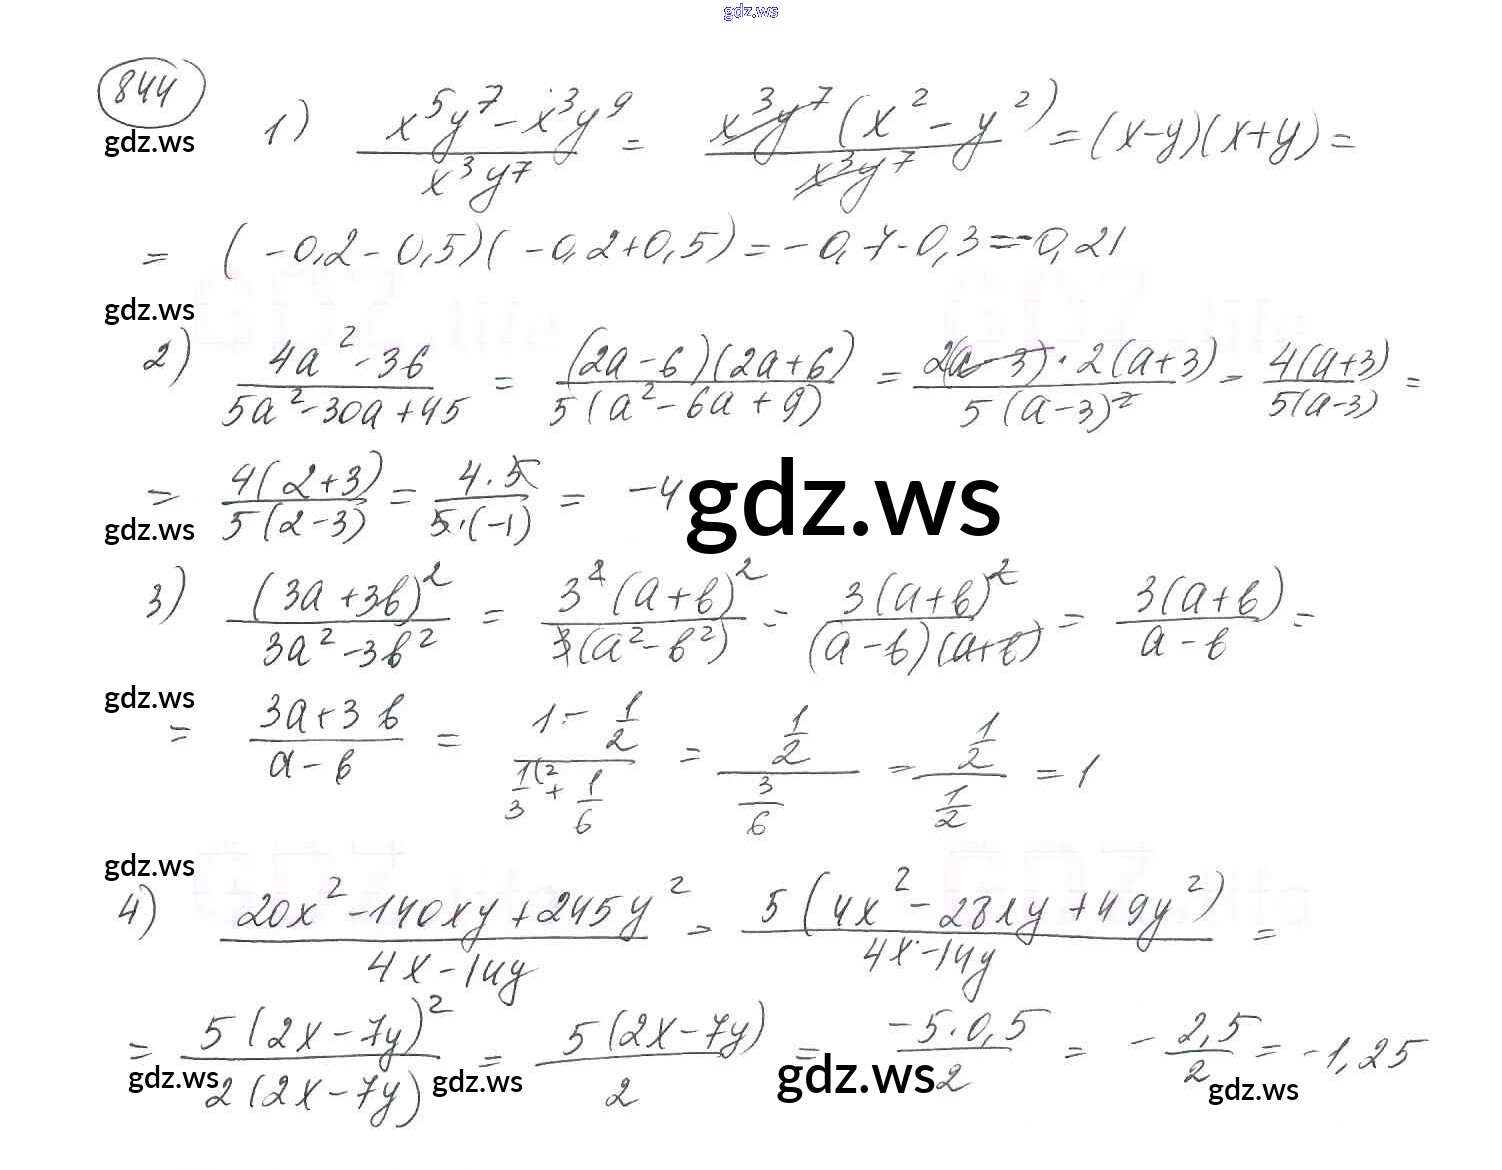 gdz.ws
844
gdz.ws
1) (x⁵y⁷ - x³y⁹)/(x³y⁷) = (x³y⁷(x² - y²))/(x³y⁷) = (x-y)(x+y) =
= (-0,2 - 0,5)(-0,2+0,5) = -0,7·0,3 = -0,21
gdz.ws
2) (4a² - 36)/(5a² - 30a + 45) = ((2a-6)(2a+6))/(5(a² - 6a + 9)) = (2(a-3)·2(a+3))/(5(a-3)²) = (4(a+3))/(5(a-3)) =
= (4(2+3))/(5(2-3)) = (4·5)/(5·(-1)) = -4
gdz.ws
gdz.ws
3) (3a+3b)²/(3a² - 3b²) = (3²(a+b)²)/(3(a² - b²)) = (3(a+b)²)/((a-b)(a+b)) = (3(a+b))/(a-b) =
gdz.ws
= (3a+3b)/(a-b) = (1 - 1/2)/(1/3(² + 1/6) = (1/2)/(3/6) = (1/2)/(1/2) = 1
gdz.ws
4) (20x² - 140xy + 245y²)/(4x - 14y) = (5(4x² - 28xy + 49y²))/(4x - 14y) =
= (5(2x-7y)²)/(2(2x-7y)) = (5(2x-7y))/2 = (-5·0,5)/2 = -2,5/2 = -1,25
gdz.ws gdz.ws gdz.ws gdz.ws